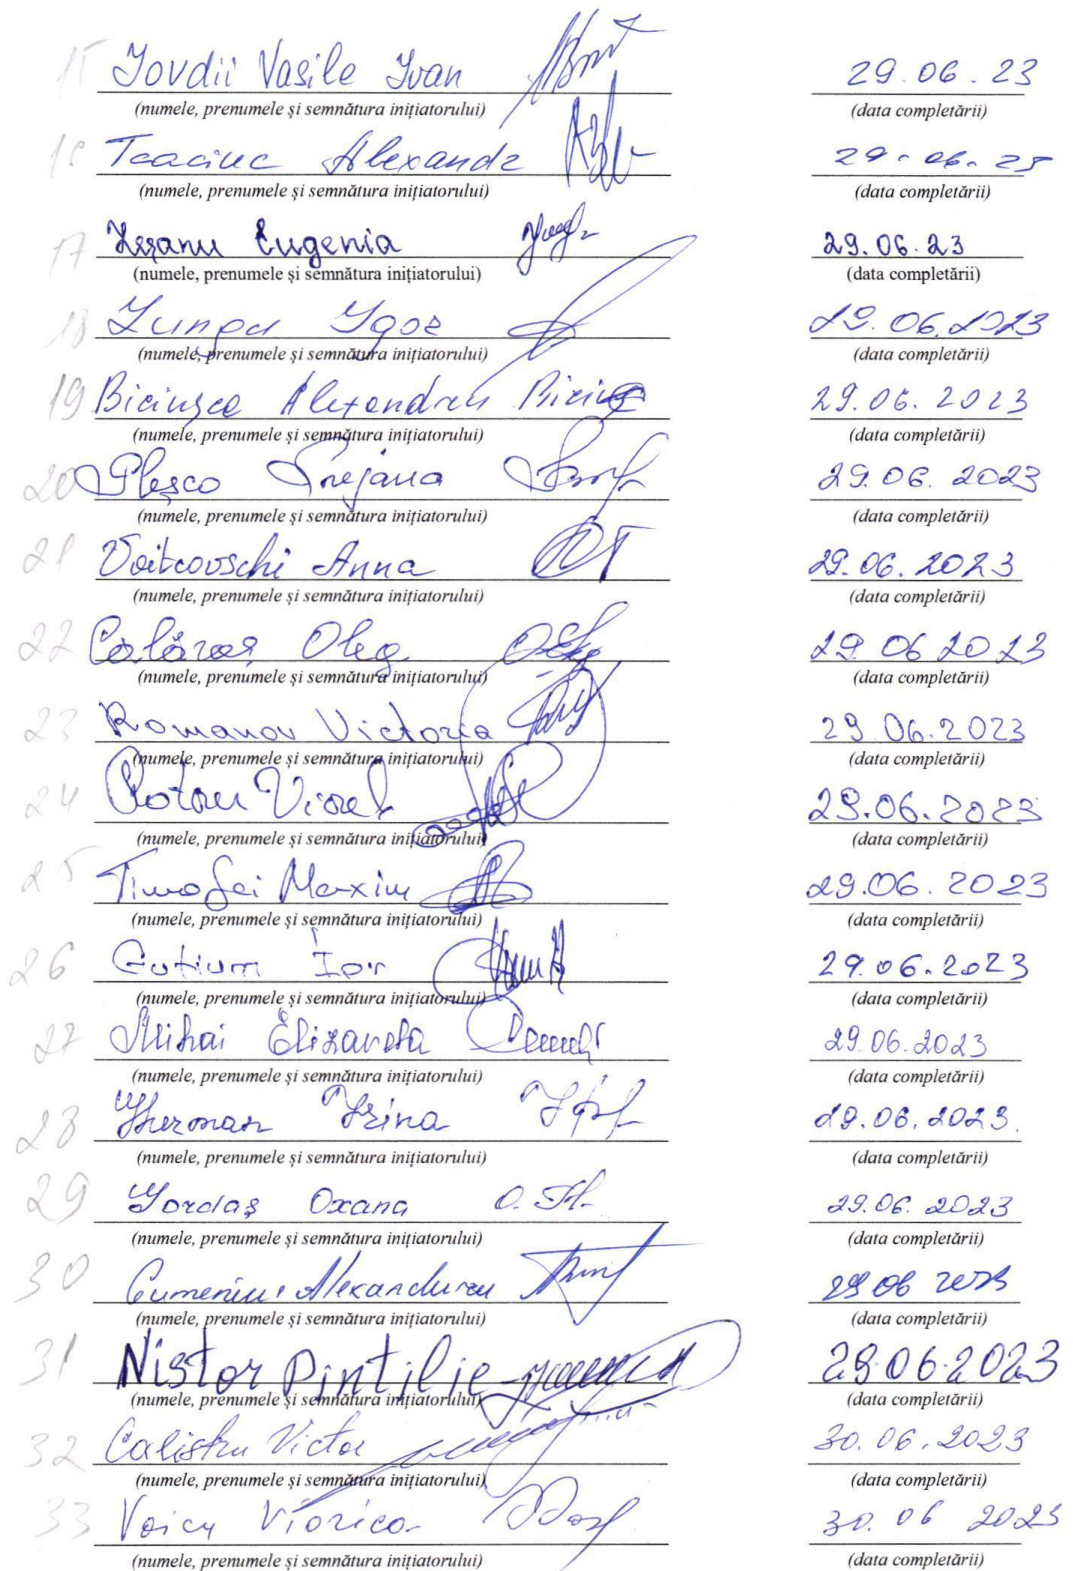 15 Iovdii Vasile Ivan 29.06.23
(numele, prenumele și semnătura inițiatorului) (data completării)
Alexandr 29.06.23
(numele, prenumele și semnătura inițiatorului) (data completării)
17 Eugenia 29.06.23
(numele, prenumele și semnătura inițiatorului) (data completării)
18 Lungu Igor 29.06.2023
(numele, prenumele și semnătura inițiatorului) (data completării)
19 Biciușca Alexandru 29.06.2023
(numele, prenumele și semnătura inițiatorului) (data completării)
20 Pleșco Snejana 29.06.2023
(numele, prenumele și semnătura inițiatorului) (data completării)
21 Voitcovschi Anna 29.06.2023
(numele, prenumele și semnătura inițiatorului) (data completării)
22 Călăraș Oleg 29 06 2023
(numele, prenumele și semnătura inițiatorului) (data completării)
23 Romanov Victoria 29.06.2023
(numele, prenumele și semnătura inițiatorului) (data completării)
24 Rotaru Viorel 29.06.2023
(numele, prenumele și semnătura inițiatorului) (data completării)
25 Timofei Maxim 29.06.2023
(numele, prenumele și semnătura inițiatorului) (data completării)
26 Guțium Ior 29.06.2023
(numele, prenumele și semnătura inițiatorului) (data completării)
27 Mihai Elizaveta 29.06.2023
(numele, prenumele și semnătura inițiatorului) (data completării)
28 Gherman Irina 29.06.2023.
(numele, prenumele și semnătura inițiatorului) (data completării)
29 Iordaș Oxana 29.06.2023
(numele, prenumele și semnătura inițiatorului) (data completării)
30 29 06 2023
(numele, prenumele și semnătura inițiatorului) (data completării)
31 Nistor Pintilie 29.06.2023
(numele, prenumele și semnătura inițiatorului) (data completării)
32 Calistru Victor 30.06.2023
(numele, prenumele și semnătura inițiatorului) (data completării)
33 Voicu Viorica 30.06 2023
(numele, prenumele și semnătura inițiatorului) (data completării)